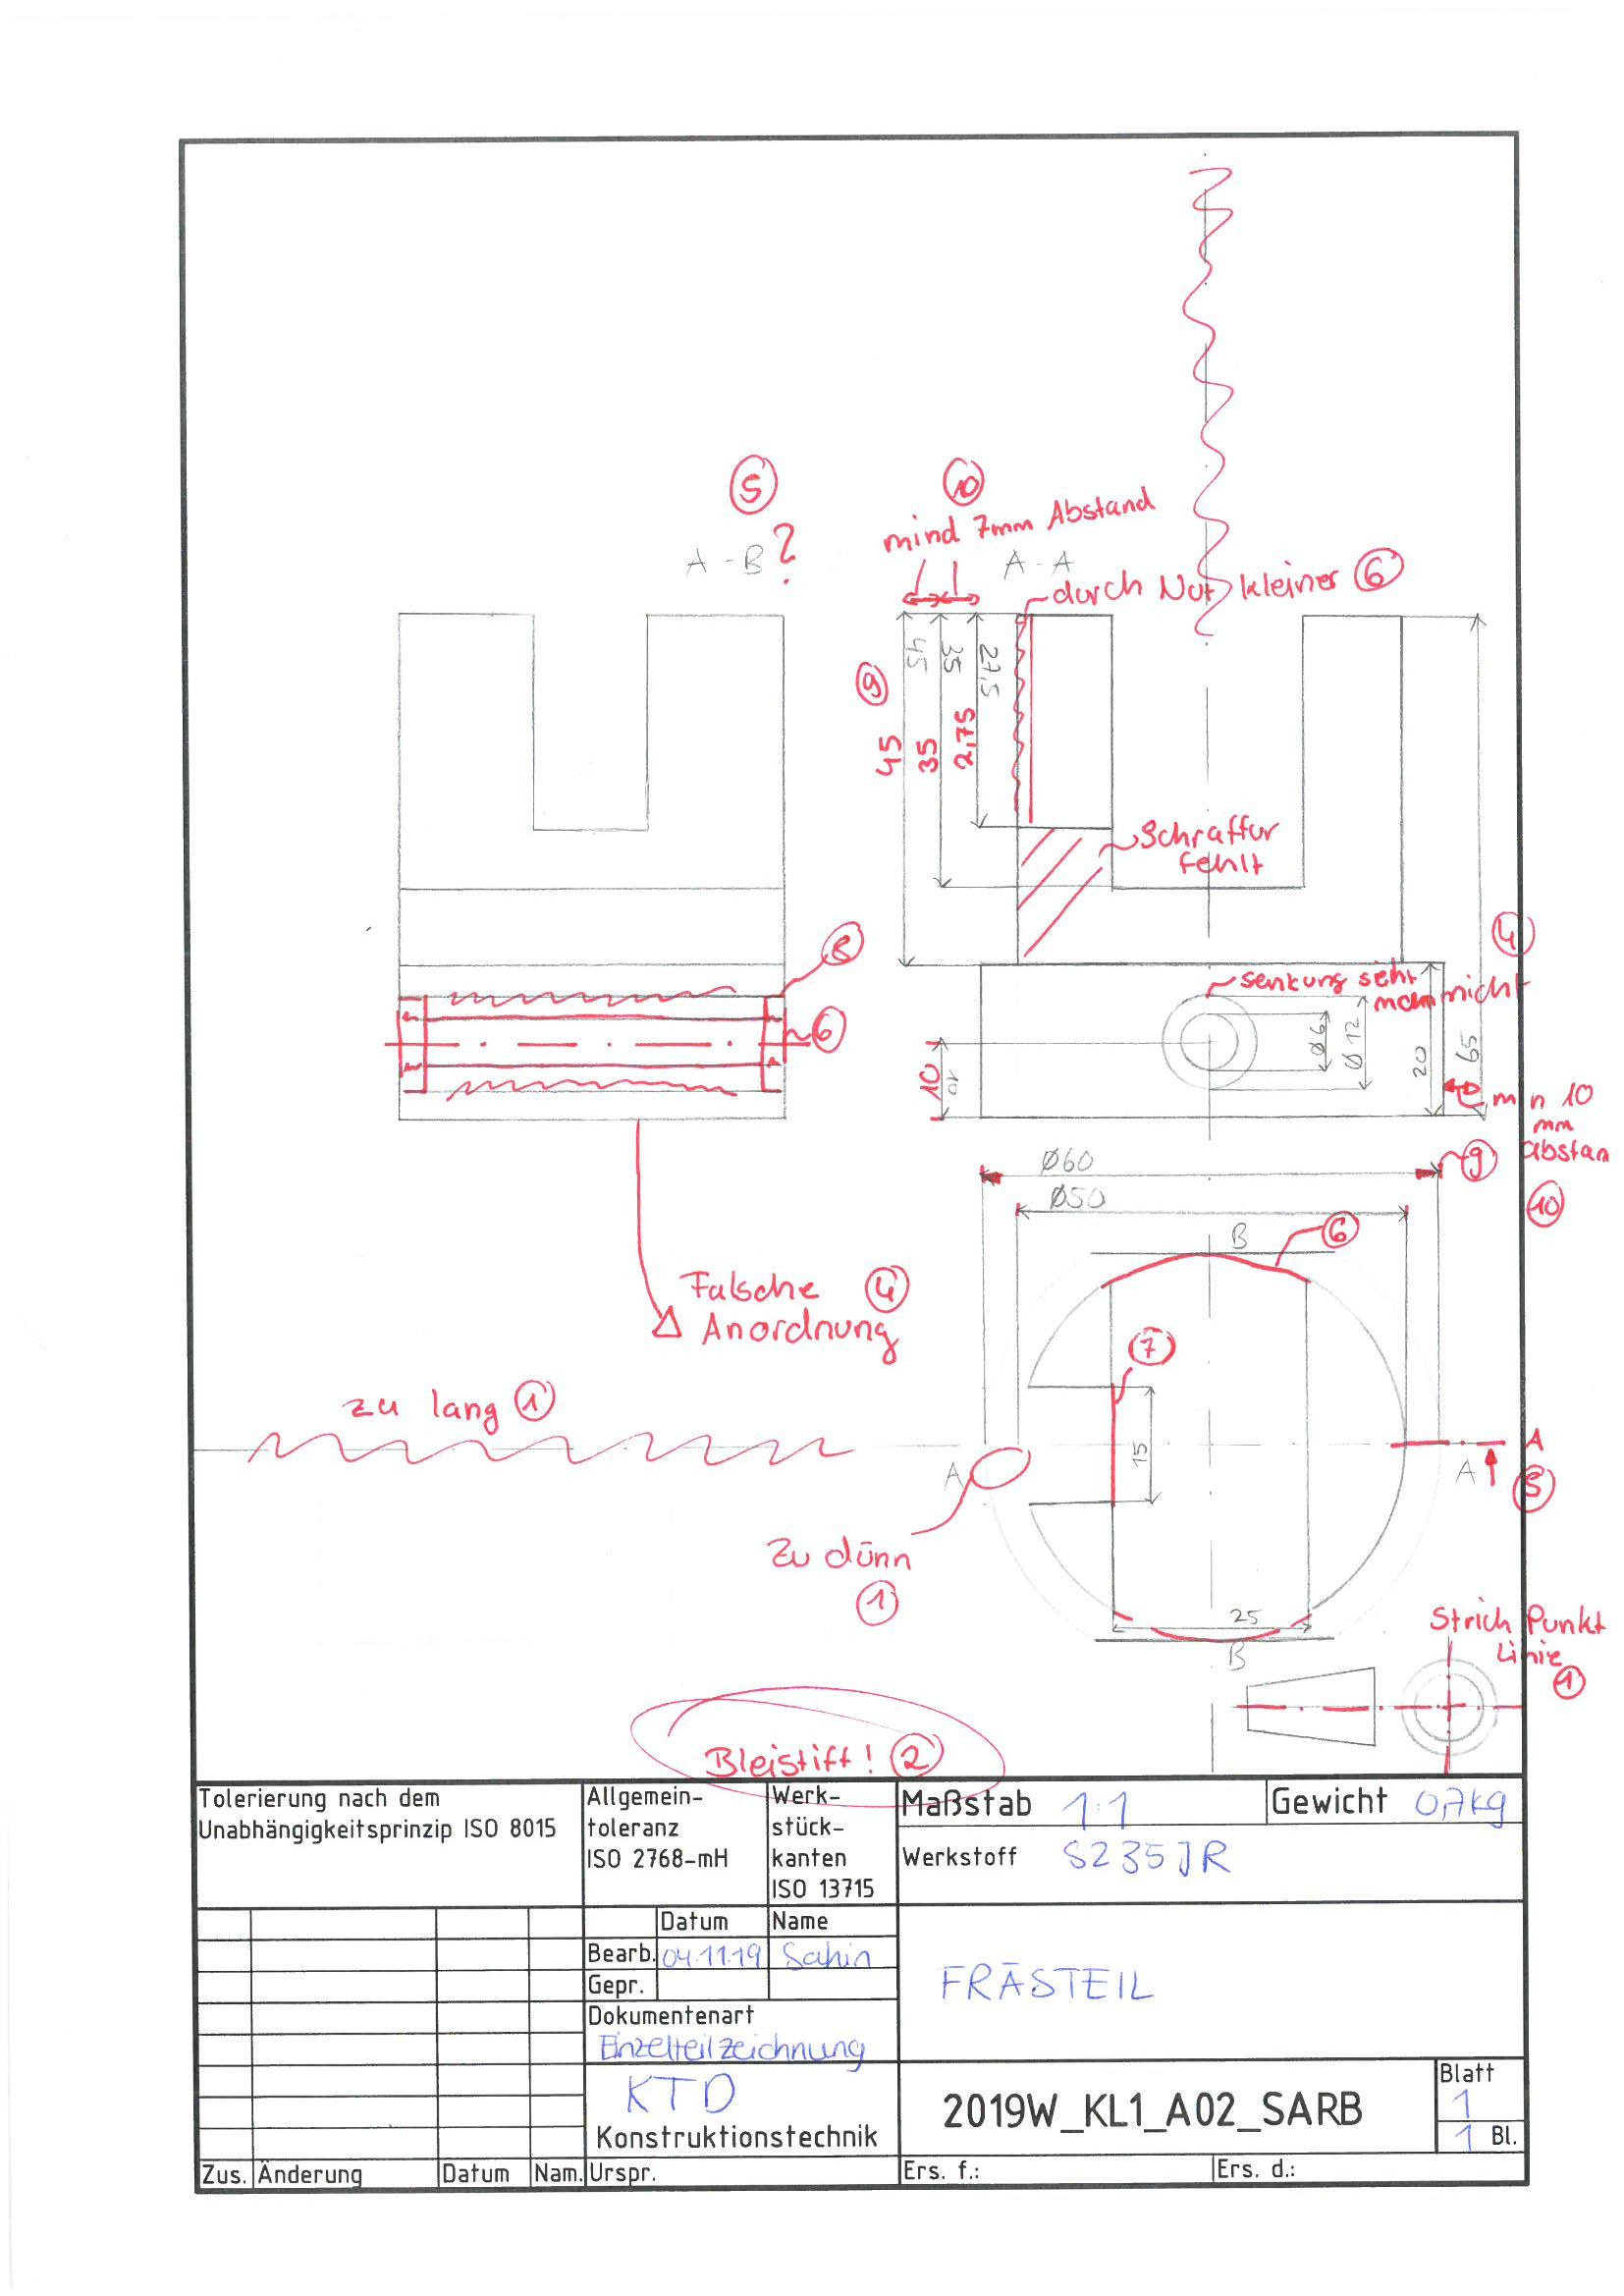 5
A-B?
10
mind 7mm Abstand
A-A
durch Nut kleiner 6
45
35
27,5
9
45
35
2,75
Schraffur
fehlt
8
6
4
Senkung sieht
man nicht
Ø6
Ø12
20
65
10
10
min 10
mm
Abstan
10
9
Ø60
Ø50
B
6
Falsche 4
Anordnung
7
15
zu lang 1
A
A
A
5
Zu dünn
1
25
B
Strich Punkt
Linie
1
Bleistift! 2
Tolerierung nach dem
Unabhängigkeitsprinzip ISO 8015
Allgemein-
toleranz
ISO 2768-mH
Werk-
stück-
kanten
ISO 13715
Maßstab 1:1
Gewicht 0,7kg
Werkstoff S235JR
Datum Name
Bearb. 04.11.19 Sahin
Gepr.
Dokumentenart
Einzelteilzeichnung
KTD
Konstruktionstechnik
FRÄSTEIL
2019W_KL1_A02_SARB
Blatt
1
1 Bl.
Zus. Änderung Datum Nam. Urspr. Ers. f.: Ers. d.: